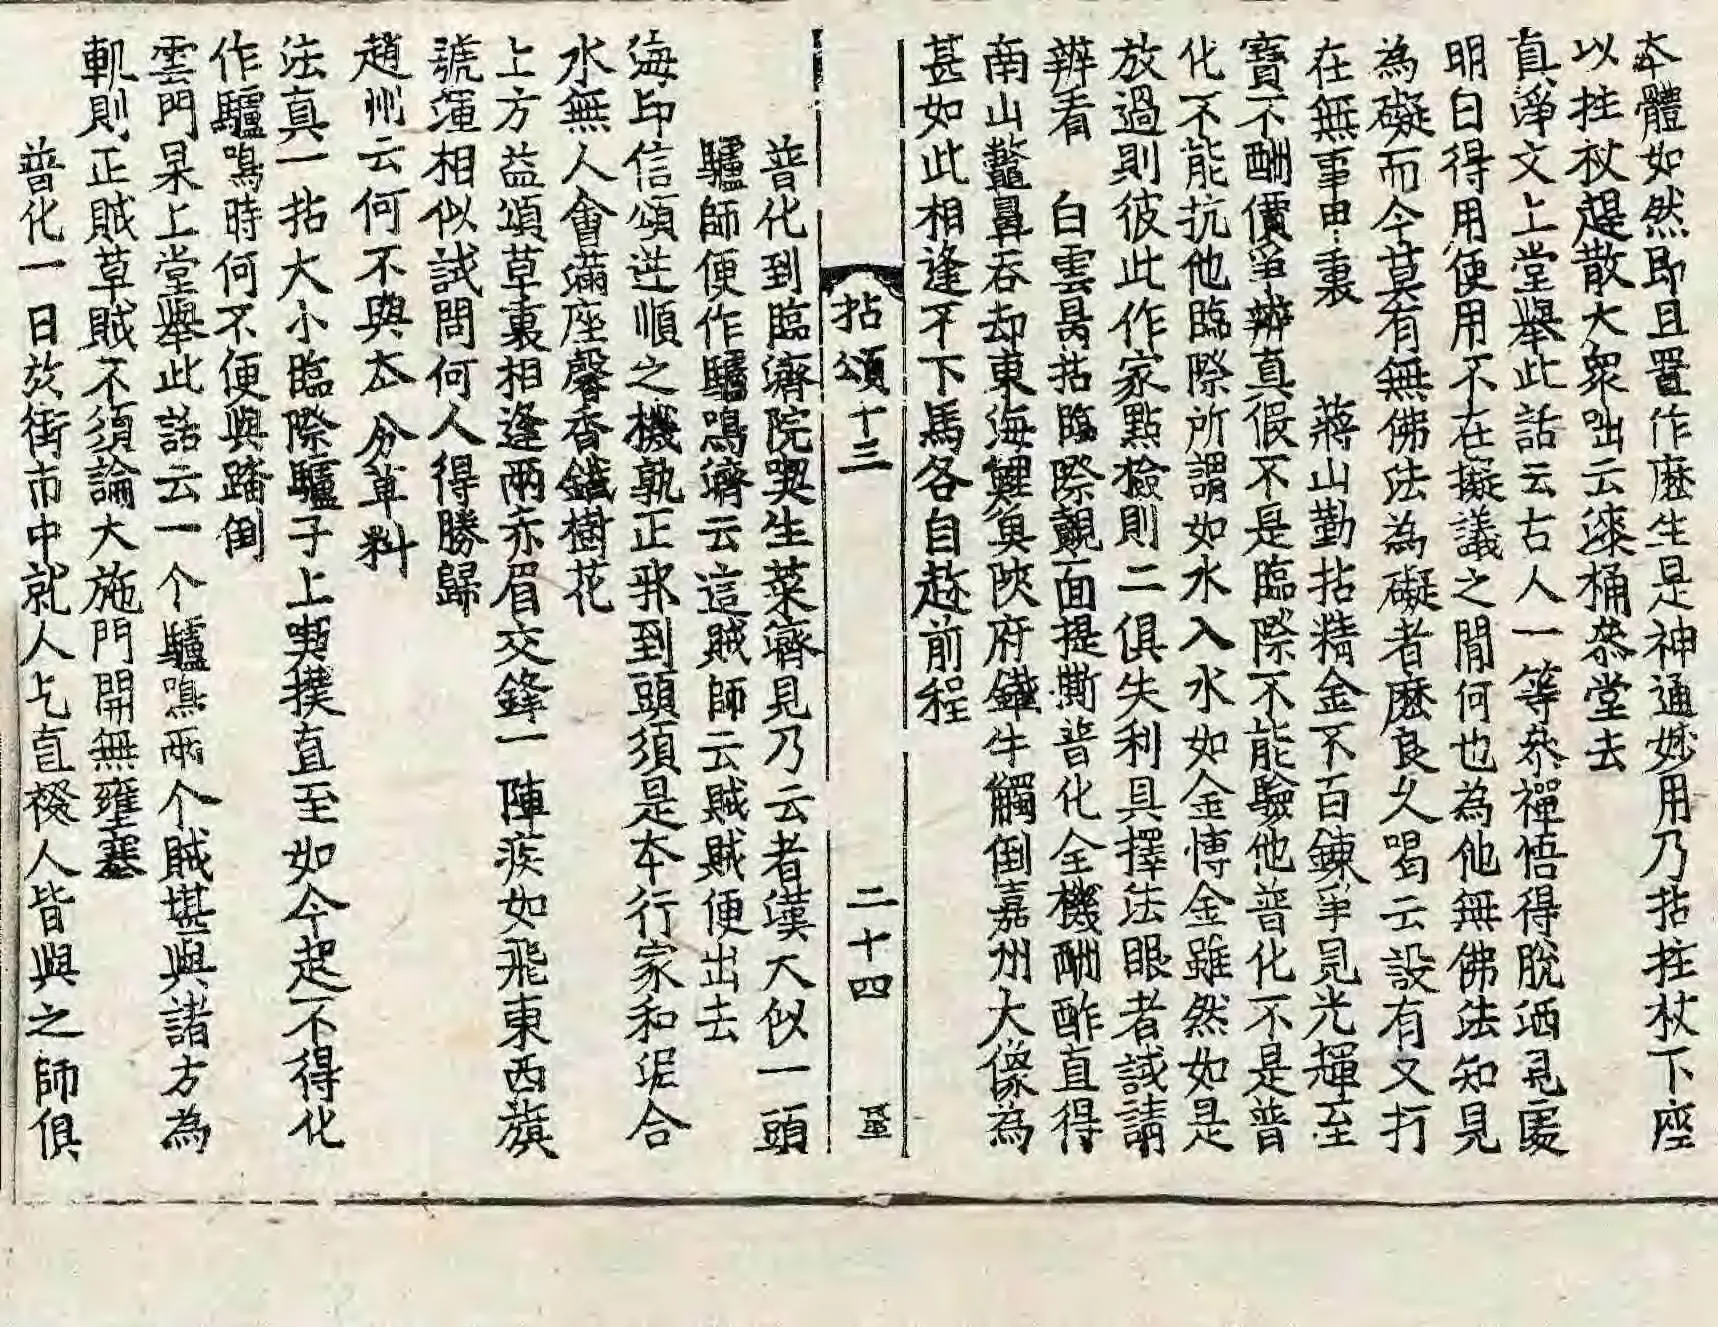 本體如然即且置作麽生是神通妙用乃拈拄杖下座
以拄杖趕散大衆咄云漆桶叅堂去
真淨文上堂舉此話云古人一等叅禪悟得脫洒見處
明白得用便用不在擬議之間何也為他無佛法知見
為礙而今莫有無佛法為礙者麽良久喝云設有又打
在無事甲裏　蔣山勤拈精金不百鍊爭見光輝至
寶不酬價爭辨真假不是臨際不能驗他普化不是普
化不能抗他臨際所謂如水入水如金博金雖然如是
放過則彼此作家點檢則二俱失利具擇法眼者試請
辨看　白雲昺拈臨際覿面提撕普化全機酬酢直得
南山鼈鼻吞却東海鯉魚陝府鐵牛觸倒嘉州大像為
甚如此相逢不下馬各自趁前程
拈頌十三　二十四
普化到臨濟院喫生菜濟見乃云者漢大似一頭
驢師便作驢鳴濟云這賊師云賊賊便出去
海印信頌逆順之機孰正邪到頭須是本行家和泥合
水無人會滿座馨香鐵樹花
上方益頌草裏相逢兩赤眉交鋒一陣疾如飛東西旗
號渾相似試問何人得勝歸
趙州云何不與本分草料
法真一拈大小臨際驢子上野撲直至如今起不得化
作驢鳴時何不便與踏倒
雲門杲上堂舉此話云一个驢鳴兩个賊堪與諸方為
軌則正賊草賊不須論大施門開無壅塞
普化一日於街市中就人乞直裰人皆與之師俱